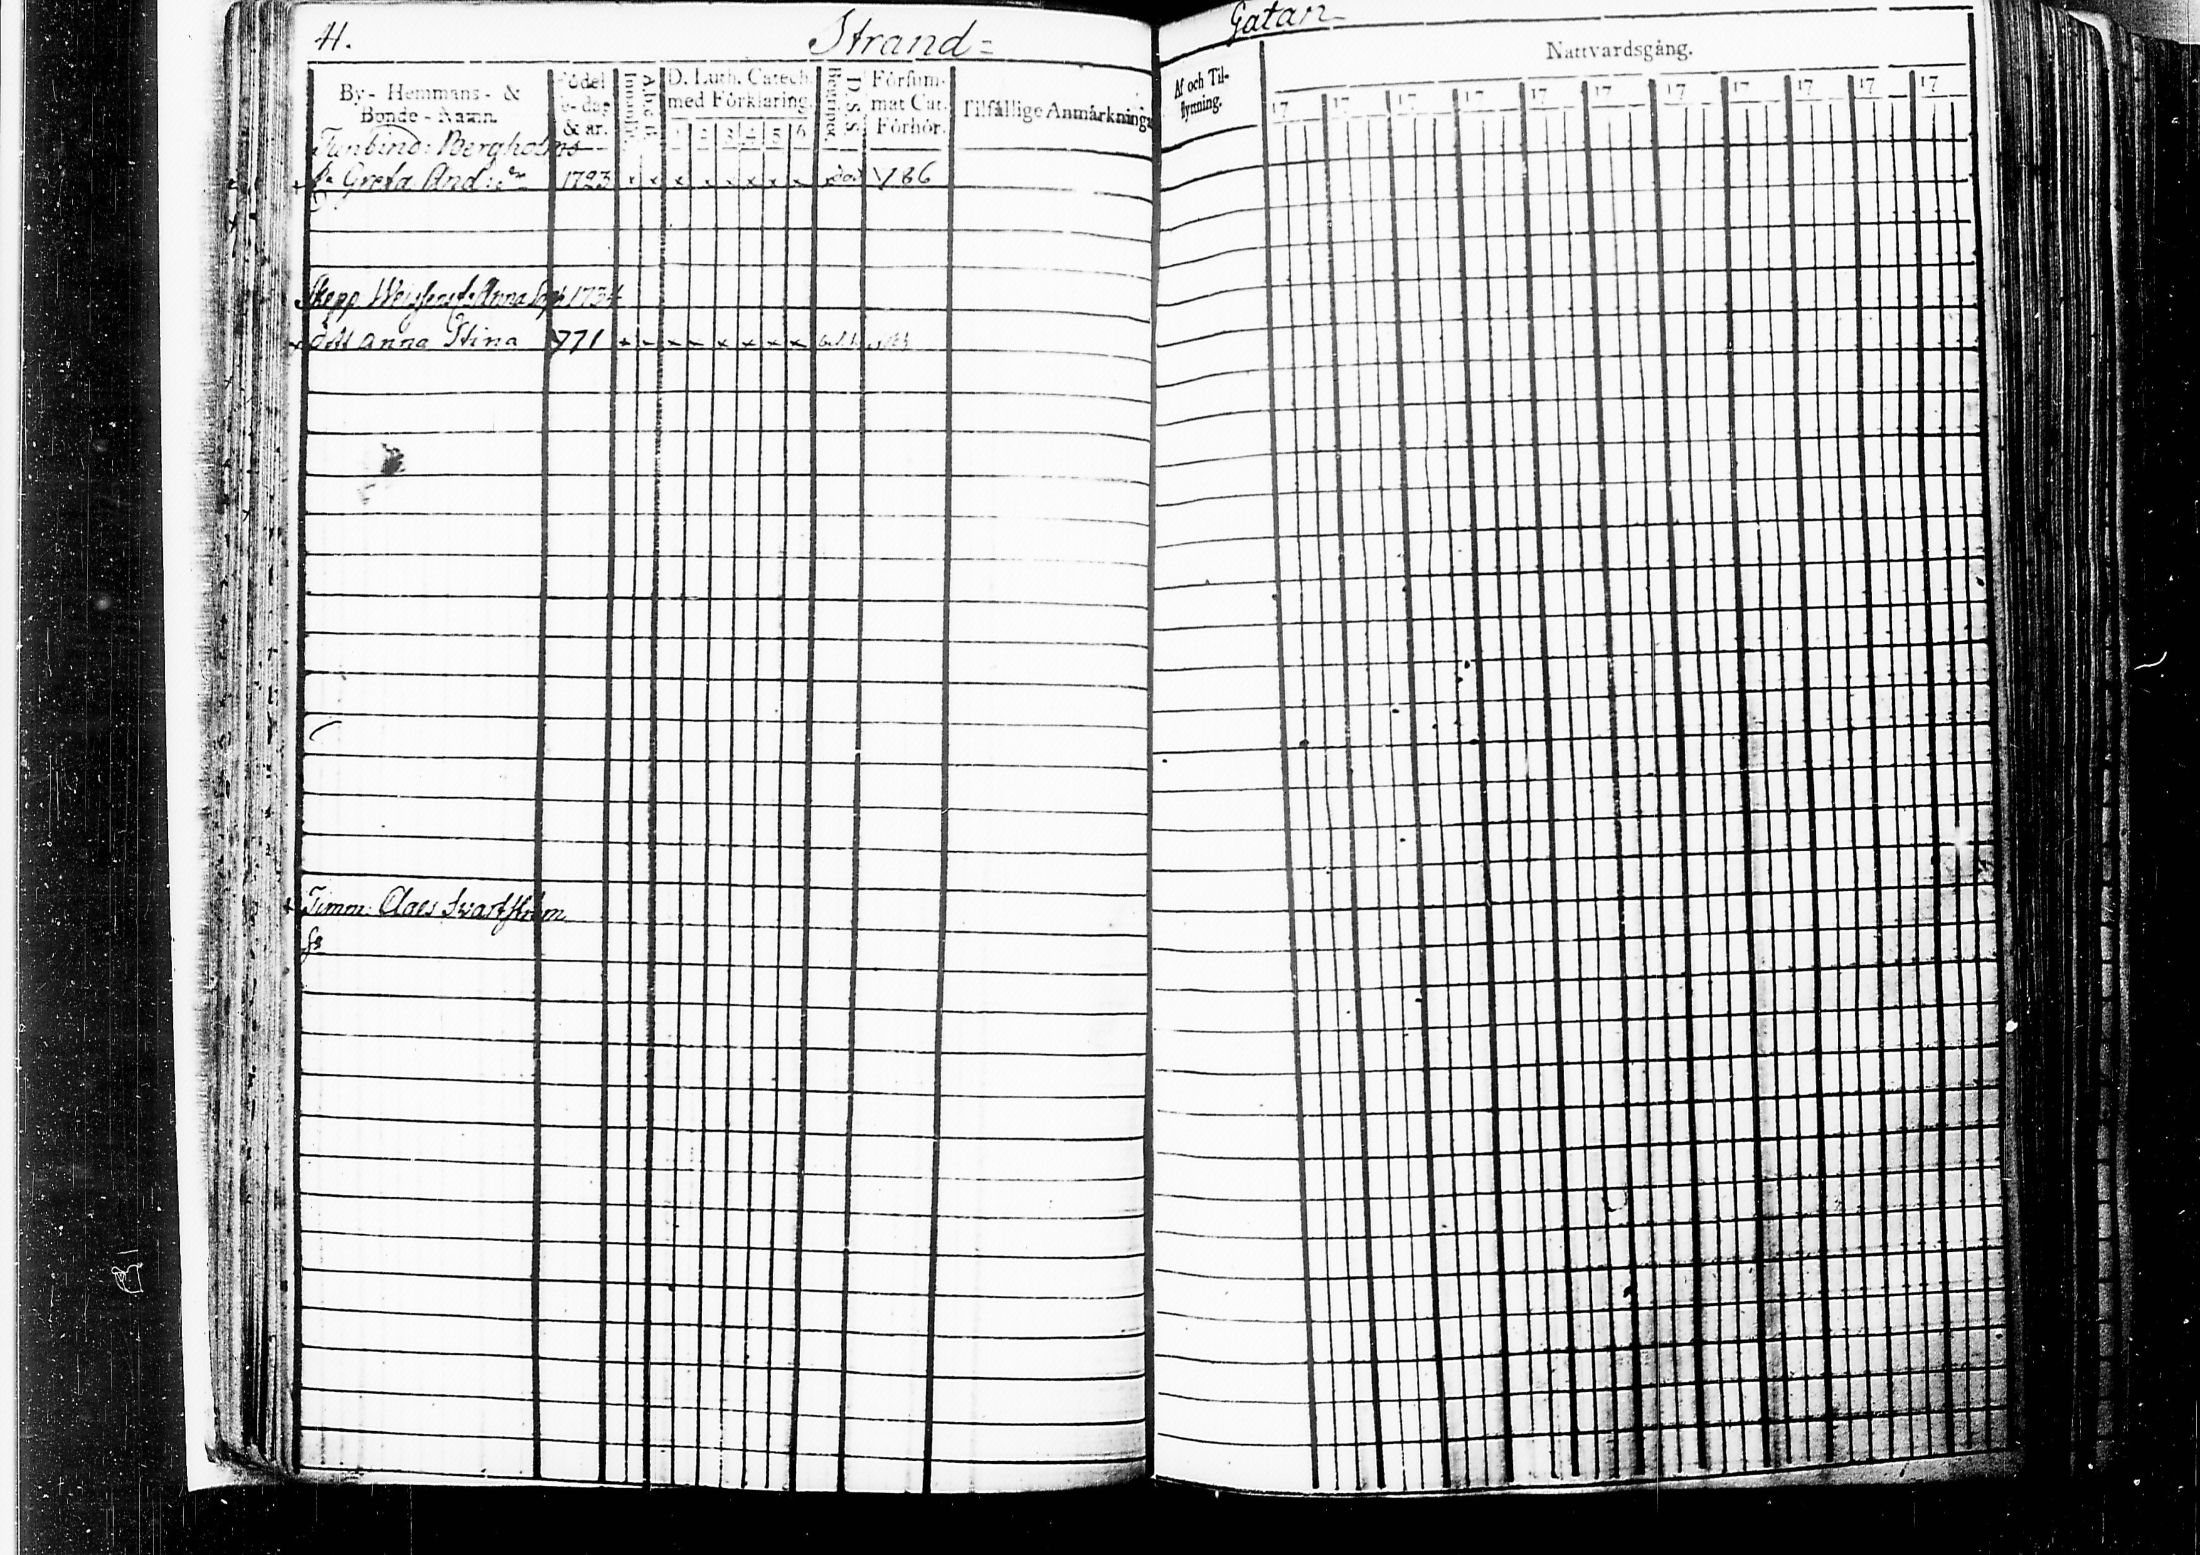 41. Strand= Gatan
By- Hemmans- & Bonde-Namn.
Födelse-dag & år.
Innanläs.
A.b.c.b.
D. Luth. Catech. med Förklaring.
1 2 3 4 5 6
Begriper.
D. S. S.
Försummat Cat. Förhör.
Tilfällige Anmärkningar
Af och Tilflyttning.
Nattvardsgång.
17 17 17 17 17 17 17 17 17 17 17
Tunbind: Bergholms
Greta And: dr 1723 x x x x x x x x död 786
Skepp Anna 1734
dott Anna Stina 771 x x x x x x x x
x Timm: Claes Swartström